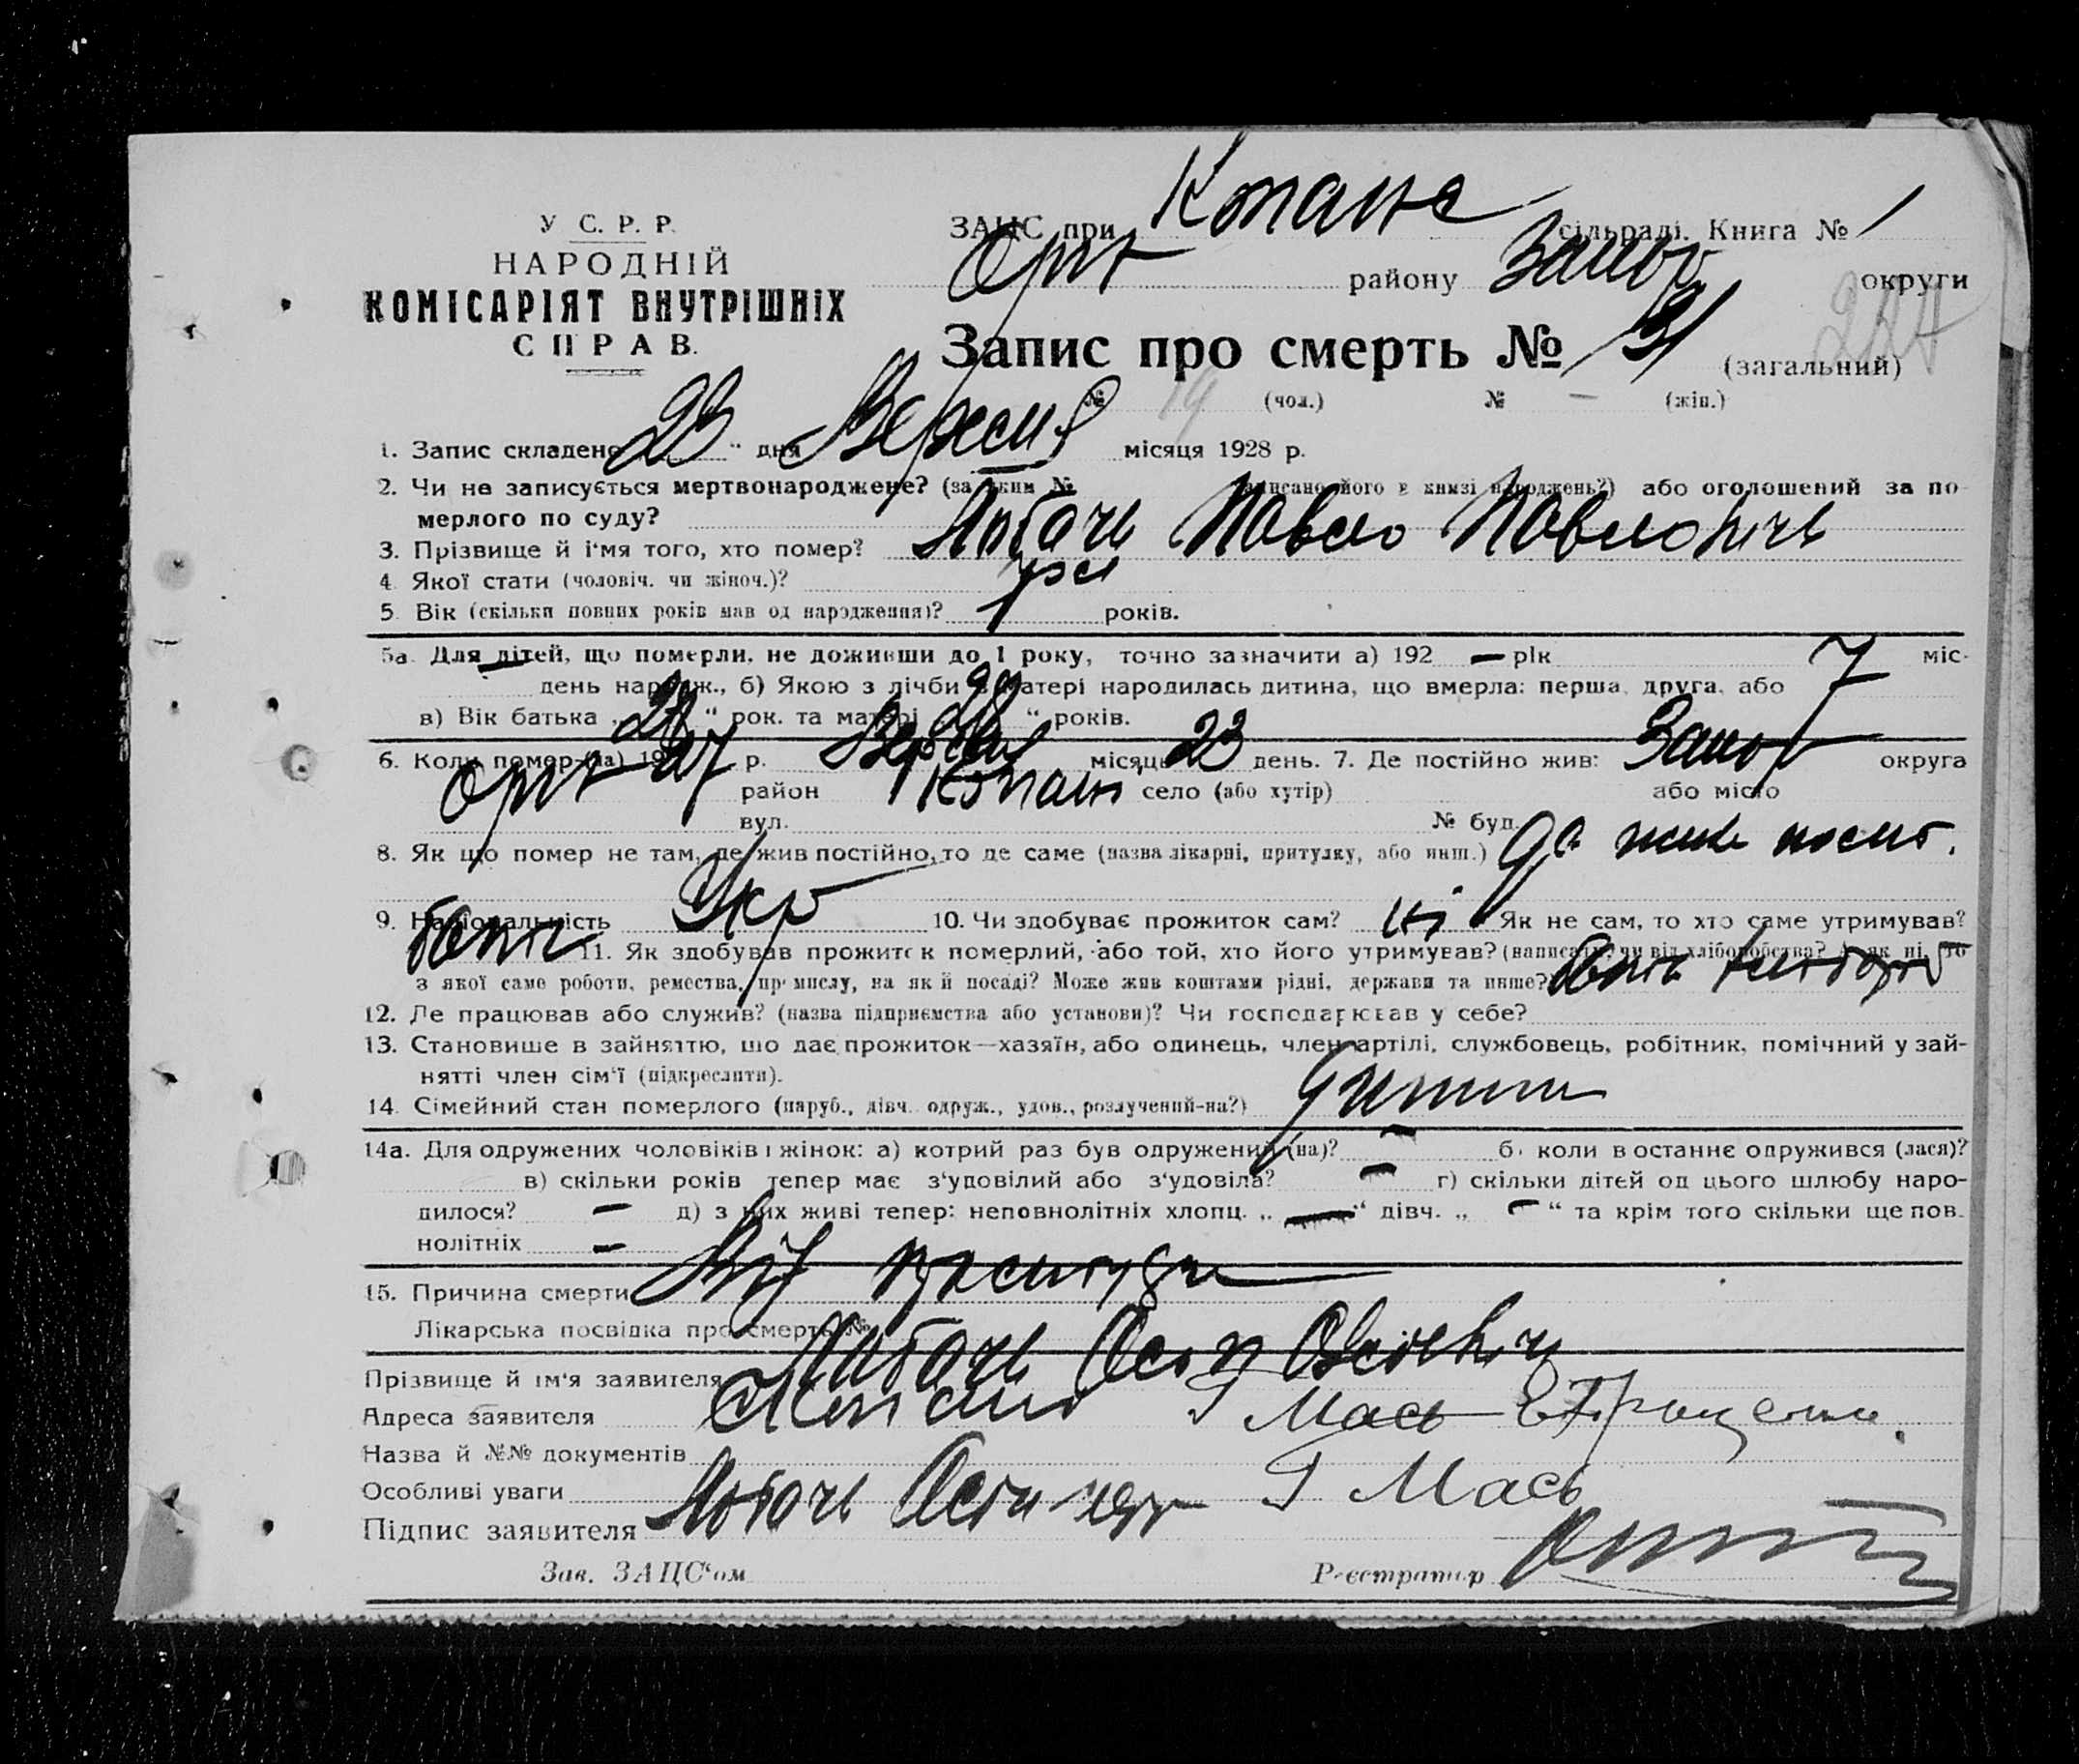 У С. Р. Р.
НАРОДНІЙ
КОМІСАРІЯТ ВНУТРІШНІХ
СПРАВ.
ЗАЦС при Копане сільраді. Книга № 1
Оріх району Запоро округи
Запис про смерть № 31 (загальний)
№ 19 (чол.) № — (жін.)
1. Запис складено 23 " дня Вересня місяця 1928 р.
2. Чи не записується мертвонароджене? (за яким № записано його в книзі народжень?) або оголошений за по-
мерлого по суду?
3. Прізвище й і'мя того, хто помер? Лобачь Павло Павловічь
4. Якої стати (чоловіч. чи жіноч.)?
5. Вік (скільки повних років мав од народження)? 1 років.
5а. Для дітей, що померли, не доживши до 1 року, точно зазначити а) 192 — рік міс-
день народж., б) Якою з лічби в матері народилась дитина, що вмерла: перша, друга, або 7
в) Вік батька „ " рок. та матері „ " років.
6. Коли помер-(ла) 192 р. місяця 23 день. 7. Де постійно жив: Запор округа
Оріх район Копані село (або хутір) або місто
вул. № буд.
8. Як що помер не там, де жив постійно, то де саме (назва лікарні, притулку, або инш.) де жив
9. Національність Укр 10. Чи здобуває прожиток сам? ні Як не сам, то хто саме утримував?
11. Як здобував прожиток померлий, або той, хто його утримував? (написати, чи від хліборобства? А як ні, то
з якої саме роботи, ремества, промислу, на якій посаді? Може жив коштами рідні, держави та инше?)
12. Де працював або служив? (назва підприємства або установи)? Чи господарював у себе?
13. Становише в зайняттю, що дає прожиток—хазяїн, або одинець, член артілі, службовець, робітник, помічний у зай-
нятті член сім'ї (підкреслити).
14. Сімейний стан померлого (паруб., дівч. одруж., удов., розлучений-на?)
14а. Для одружених чоловіків і жінок: а) котрий раз був одружений (на)? — б) коли востаннє одружився (лася)?
в) скільки років тепер має з'удовілий або з'удовіла? — г) скільки дітей од цього шлюбу наро-
дилося? — д) з них живі тепер: неповнолітніх хлопц. „ — " дівч. „ — " та крім того скільки ще пов-
нолітніх —
15. Причина смерти Від простуди
Лікарська посвідка про смерть №
Прізвище й ім'я заявителя Лобачь Осип
Адреса заявителя Г Мась
Назва й №№ документів
Особливі уваги Г Мась
Підпис заявителя Лобачь
Зав. ЗАЦС'ом Реєстратор